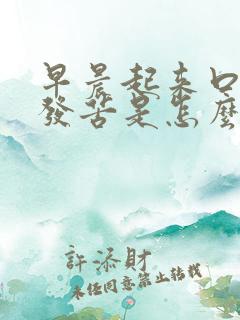 早晨起來口
發苦是怎麼
許添財
未经同意禁止转载